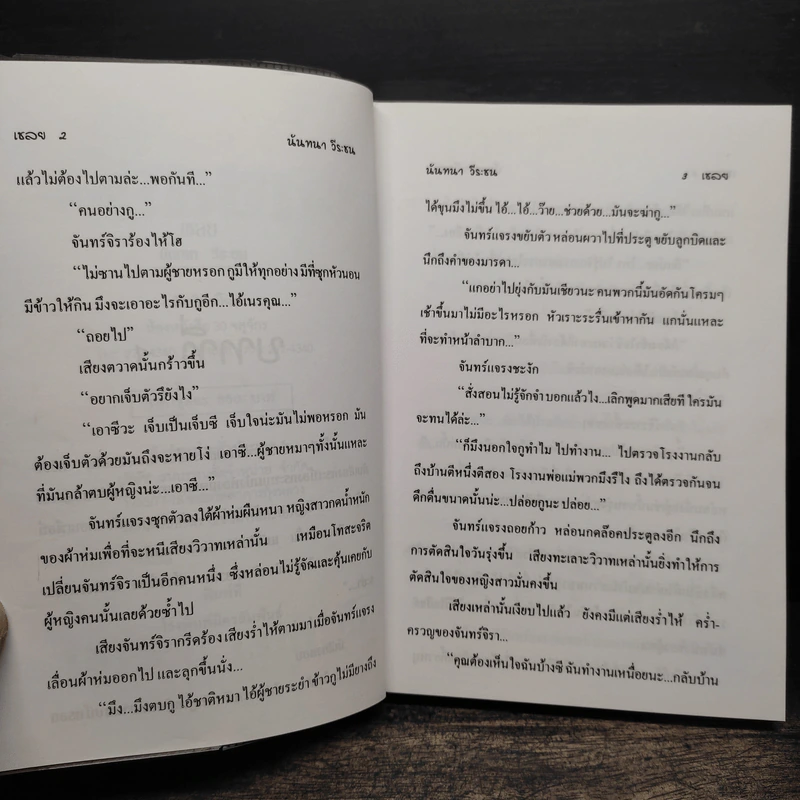 เชลย 2
นันทนา วีระชน
แล้วไม่ต้องไปตามล่ะ...พอกันที..."
"คนอย่างกู..."
จันทร์จิราร้องไห้โฮ
"ไม่ซานไปตามผู้ชายหรอก กูมีให้ทุกอย่าง มีที่ซุกหัวนอน
มีข้าวให้กิน มึงจะเอาอะไรกับกูอีก...ไอ้เนรคุณ..."
"ถอยไป"
เสียงตวาดนั้นกร้าวขึ้น
"อยากเจ็บตัวรึยังไง"
"เอาซีวะ เจ็บเป็นเจ็บซี เจ็บใจน่ะมันไม่พอหรอก มัน
ต้องเจ็บตัวด้วยมันถึงจะหายโง่ เอาซี...ผู้ชายหมาๆทั้งนั้นแหละ
ที่มันกล้าตบผู้หญิงน่ะ...เอาซี..."
จันทร์แจรงซุกตัวลงใต้ผ้าห่มผืนหนา หญิงสาวกดน้ำหนัก
ของผ้าห่มเพื่อที่จะหนีเสียงวิวาทเหล่านั้น เหมือนโทสะจริต
เปลี่ยนจันทร์จิราเป็นอีกคนหนึ่ง ซึ่งหล่อนไม่รู้จักและคุ้นเคยกับ
ผู้หญิงคนนั้นเลยด้วยซ้ำไป
เสียงจันทร์จิรากรีดร้อง เสียงร่ำไห้ตามมา เมื่อจันทร์แจรง
เลื่อนผ้าห่มออกไป และลุกขึ้นนั่ง...
"มึง...มึงตบกู ไอ้ชาติหมา ไอ้ผู้ชายระยำ ข้าวกูไม่มียางถึง
นันทนา วีระชน
3 เชลย
ได้ขุนมึงไม่ขึ้น ไอ้...ไอ้...ว๊าย...ช่วยด้วย...มันจะฆ่ากู..."
จันทร์แจรงขยับตัว หล่อนผวาไปที่ประตู ขยับลูกบิดและ
นึกถึงคำของมารดา...
"แกอย่าไปยุ่งกับมันเชียวนะ คนพวกนี้มันอัดกันโครมๆ
เช้าขึ้นมาไม่มีอะไรหรอก หัวเราะระรื่นเข้าหากัน แกนั่นแหละ
ที่จะทำหน้าลำบาก..."
จันทร์แจรงชะงัก
"สั่งสอนไม่รู้จักจำ บอกแล้วไง...เลิกพูดมากเสียที ใครมัน
จะทนได้ล่ะ..."
"ก็มึงนอกใจกูทำไม ไปทำงาน... ไปตรวจโรงงานกลับ
ถึงบ้านตีหนึ่งตีสอง โรงงานพ่อแม่พวกมึงรึไง ถึงได้ตรวจกันจน
ดึกดื่นขนาดนั้นน่ะ...ปล่อยกูนะ ปล่อย..."
จันทร์แจรงถอยก้าว หล่อนกดล็อคประตูลงอีก นึกถึง
การตัดสินใจวันรุ่งขึ้น เสียงทะเลาะวิวาทเหล่านี้ยิ่งทำให้การ
ตัดสินใจของหญิงสาวมั่นคงขึ้น
เสียงเหล่านั้นเงียบไปแล้ว ยังคงมีแต่เสียงร่ำไห้ คร่ำ-
ครวญของจันทร์จิรา...
"คุณต้องเห็นใจฉันบ้างซี ฉันทำงานเหนื่อยนะ...กลับบ้าน